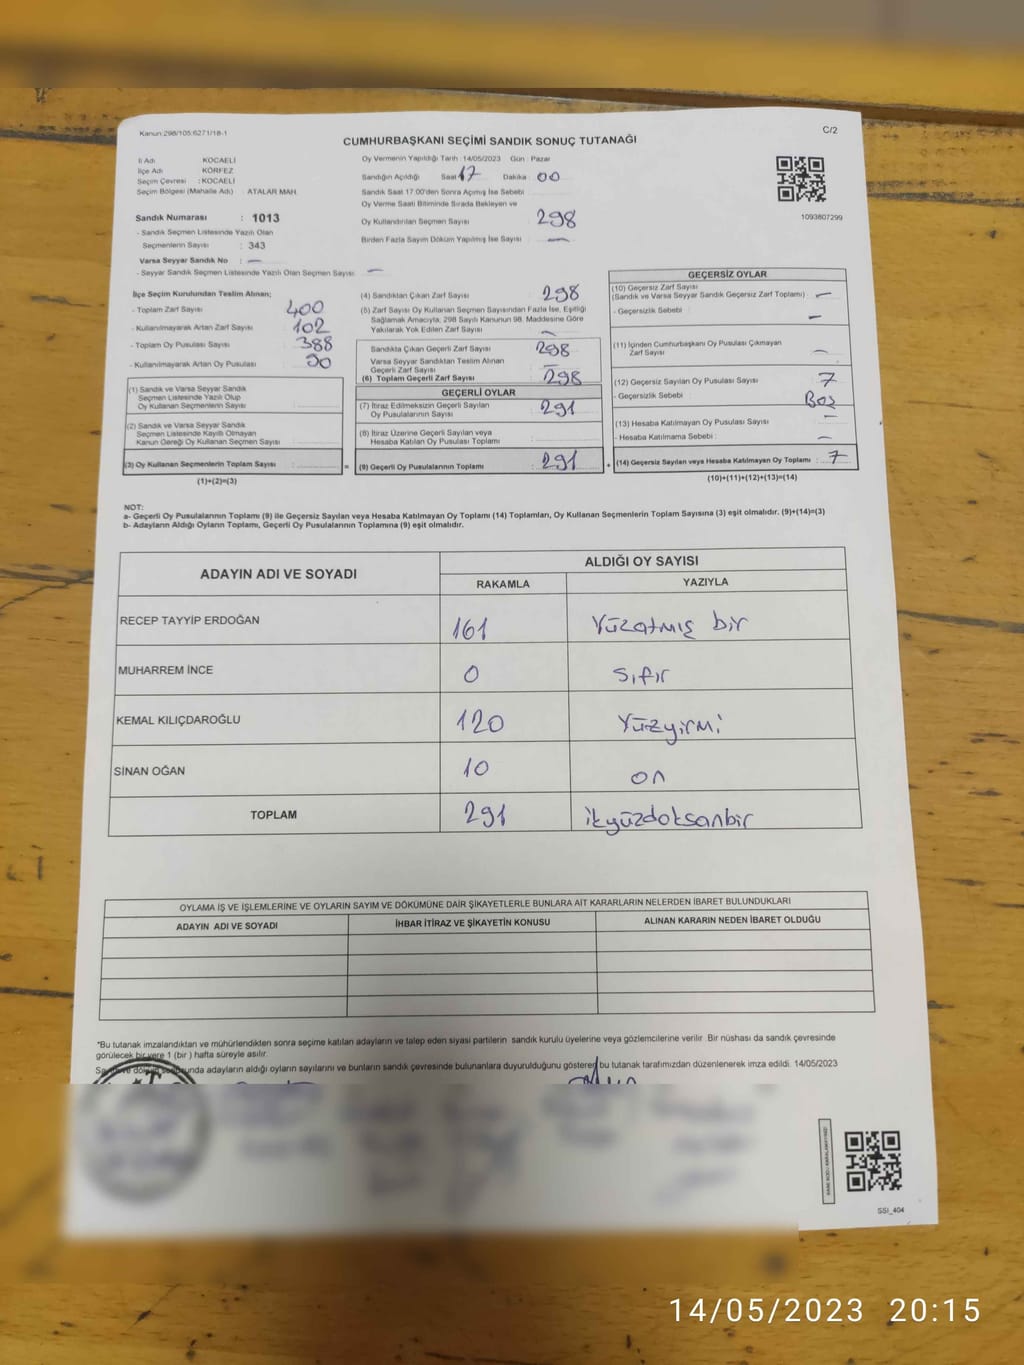 Kanun:298/105:6271/18-1
C/2
CUMHURBAŞKANI SEÇİMİ SANDIK SONUÇ TUTANAĞI
İl Adı KOCAELİ
İlçe Adı KÖRFEZ
Seçim Çevresi : KOCAELİ
Seçim Bölgesi (Mahalle Adı) : ATALAR MAH.
Oy Vermenin Yapıldığı Tarih : 14/05/2023 Gün : Pazar
Sandığın Açıldığı Saat 17 Dakika : 00
Sandık Saat 17.00'den Sonra Açımış İse Sebebi
Oy Verme Saati Bitiminde Sırada Bekleyen ve
Oy Kullandırılan Seçmen Sayısı : 298
Birden Fazla Sayım Döküm Yapılmış İse Sayısı : —
1093807299
Sandık Numarası : 1013
- Sandık Seçmen Listesinde Yazılı Olan
Seçmenlerin Sayısı : 343
Varsa Seyyar Sandık No : —
- Seyyar Sandık Seçmen Listesinde Yazılı Olan Seçmen Sayısı : —
İlçe Seçim Kurulundan Teslim Alınan;
- Toplam Zarf Sayısı : 400
- Kullanılmayarak Artan Zarf Sayısı : 102
- Toplam Oy Pusulası Sayısı : 388
- Kullanılmayarak Artan Oy Pusulası : 90
(1) Sandık ve Varsa Seyyar Sandık
Seçmen Listesinde Yazılı Olup
Oy Kullanan Seçmenlerin Sayısı :
(2) Sandık ve Varsa Seyyar Sandık
Seçmen Listesinde Kayıtlı Olmayan
Kanun Gereği Oy Kullanan Seçmen Sayısı :
(3) Oy Kullanan Seçmenlerin Toplam Sayısı : =
(1)+(2)=(3)
(4) Sandıktan Çıkan Zarf Sayısı : 298
(5) Zarf Sayısı Oy Kullanan Seçmen Sayısından Fazla İse, Eşitliği
Sağlamak Amacıyla, 298 Sayılı Kanunun 98. Maddesine Göre
Yakılarak Yok Edilen Zarf Sayısı : —
Sandıkta Çıkan Geçerli Zarf Sayısı : 298
Varsa Seyyar Sandıktan Teslim Alınan
Geçerli Zarf Sayısı : —
(6) Toplam Geçerli Zarf Sayısı : 298
GEÇERLİ OYLAR
(7) İtiraz Edilmeksizin Geçerli Sayılan
Oy Pusulalarının Sayısı : 291
(8) İtiraz Üzerine Geçerli Sayılan veya
Hesaba Katılan Oy Pusulası Toplamı :
(9) Geçerli Oy Pusulalarının Toplamı : 291 +
GEÇERSİZ OYLAR
(10) Geçersiz Zarf Sayısı
(Sandık ve Varsa Seyyar Sandık Geçersiz Zarf Toplamı) : —
- Geçersizlik Sebebi : —
(11) İçinden Cumhurbaşkanı Oy Pusulası Çıkmayan
Zarf Sayısı : —
(12) Geçersiz Sayılan Oy Pusulası Sayısı : 7
- Geçersizlik Sebebi : Boş
(13) Hesaba Katılmayan Oy Pusulası Sayısı : —
- Hesaba Katılmama Sebebi : —
(14) Geçersiz Sayılan veya Hesaba Katılmayan Oy Toplamı : 7
(10)+(11)+(12)+(13)=(14)
NOT:
a- Geçerli Oy Pusulalarının Toplamı (9) ile Geçersiz Sayılan veya Hesaba Katılmayan Oy Toplamı (14) Toplamları, Oy Kullanan Seçmenlerin Toplam Sayısına (3) eşit olmalıdır. (9)+(14)=(3)
b- Adayların Aldığı Oyların Toplamı, Geçerli Oy Pusulalarının Toplamına (9) eşit olmalıdır.
ADAYIN ADI VE SOYADI ALDIĞI OY SAYISI
RAKAMLA YAZIYLA
RECEP TAYYİP ERDOĞAN 161 Yüzatmış bir
MUHARREM İNCE 0 Sıfır
KEMAL KILIÇDAROĞLU 120 Yüzyirmi
SİNAN OĞAN 10 on
TOPLAM 291 ikyüzdoksanbir
OYLAMA İŞ VE İŞLEMLERİNE VE OYLARIN SAYIM VE DÖKÜMÜNE DAİR ŞİKAYETLERLE BUNLARA AİT KARARLARIN NELERDEN İBARET BULUNDUKLARI
ADAYIN ADI VE SOYADI İHBAR İTİRAZ VE ŞİKAYETİN KONUSU ALINAN KARARIN NEDEN İBARET OLDUĞU
*Bu tutanak imzalandıktan ve mühürlendikten sonra seçime katılan adayların ve talep eden siyasi partilerin sandık kurulu üyelerine veya gözlemcilerine verilir. Bir nüshası da sandık çevresinde
görülecek bir yere 1 (bir ) hafta süreyle asılır.
adayların aldığı oyların sayılarını ve bunların sandık çevresinde bulunanlara duyurulduğunu gösteren bu tutanak tarafımızdan düzenlenerek imza edildi. 14/05/2023
SSI_404
14/05/2023 20:15